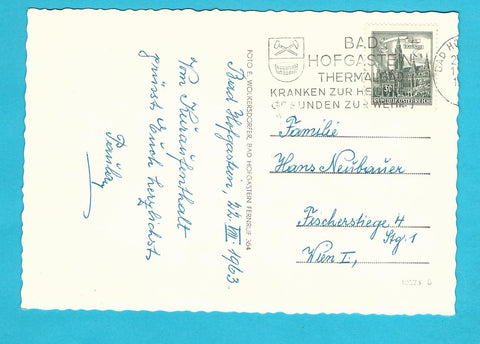 Bad Hofgastein, 22. VIII. 1963.
Vom Kuraufenthalt
grüsst Euch herzlichst
FOTO E. WOLKERSDORFER, BAD HOFGASTEIN FERNRUF 364
BAD
HOFGASTEIN
THERMALBAD
KRANKEN ZUR HEIL
GESUNDEN ZUR WEHR
BAD HO
REPUBLIK ÖSTERREICH
Familie
Hans Neubauer
Fischerstiege 4
Stg. 1
Wien I,